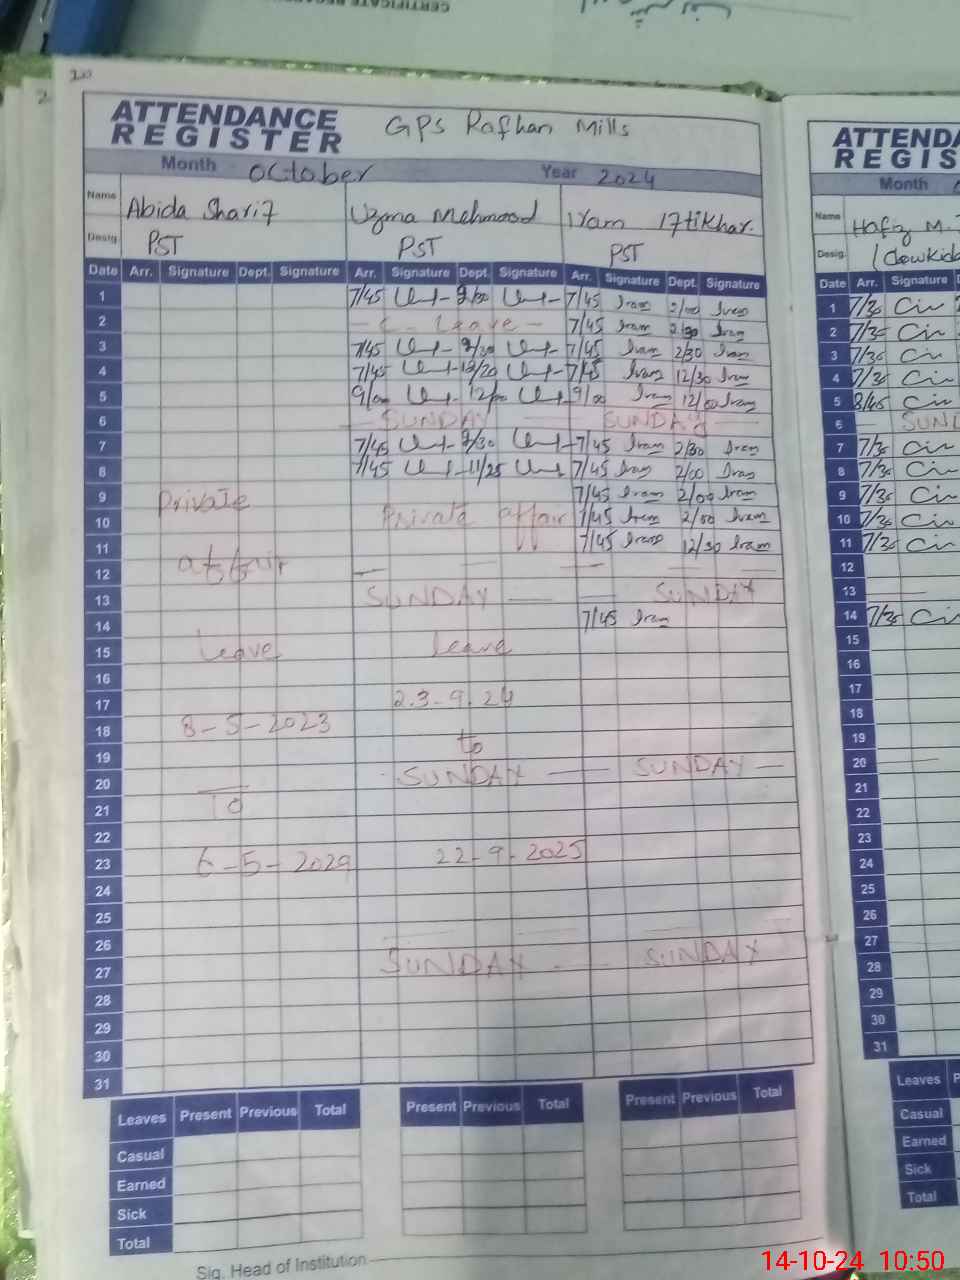 ATTENDANCE
REGISTER
GPS Rafhan Mills
Month October Year 2024
Name Abida Sharif Uzma Mehmood Iram Iftikhar.
Desig. PST PST PST
Date Arr. Signature Dept. Signature Arr. Signature Dept. Signature Arr. Signature Dept. Signature
1 7/45 2/30 7/45 Iram 2/00 Iram
2 - C - Leave - 7/45 Iram 2/30 Iram
3 7/45 2/30 7/45 Iram 2/30 Iram
4 7/45 12/20 7/45 Iram 12/30 Iram
5 9/00 12/00 9/00 Iram 12/00 Iram
6 SUNDAY SUNDAY
7 7/45 2/30 7/45 Iram 2/30 Iram
8 7/45 11/25 7/45 Iram 2/00 Iram
9 Private 7/45 Iram 2/00 Iram
10 Private affair 7/45 Iram 2/00 Iram
11 affair 7/45 Iram 12/30 Iram
12
13 SUNDAY SUNDAY
14 7/45 Iram
15 Leave leave
16
17 23-9-24
18 8-5-2023
19 to
20 SUNDAY SUNDAY
21 TO
22
23 6-5-2029 22-9-2025
24
25
26
27 SUNDAY SUNDAY
28
29
30
31
Leaves Present Previous Total Present Previous Total Present Previous Total
Casual
Earned
Sick
Total
Sig. Head of Institution
ATTENDA
REGIS
Month
Name Hafiz M.
Desig.
Date Arr. Signature
1 7/30
2 7/30
3 7/30
4 7/30
5 8/45
6 SUND
7 7/30
8 7/30
9 7/30
10 7/30
11 7/30
12
13
14 7/30
15
16
17
18
19
20
21
22
23
24
25
26
27
28
29
30
31
Leaves
Casual
Earned
Sick
Total
14-10-24 10:50